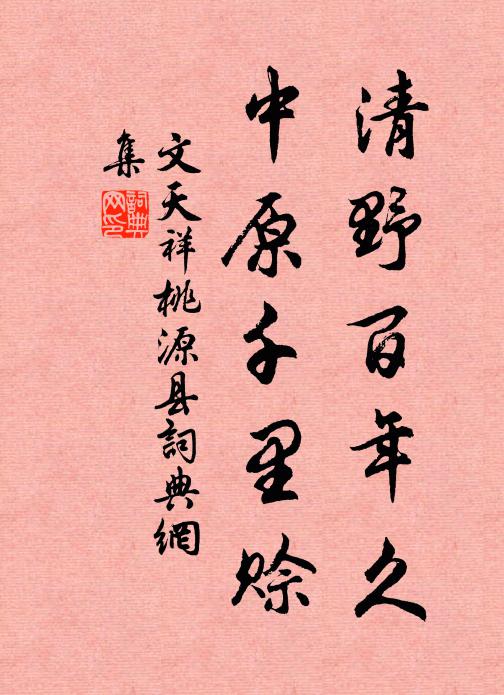 清野百年久
中原千里赊
文天祥桃源县詞典網
集
詞典
网印